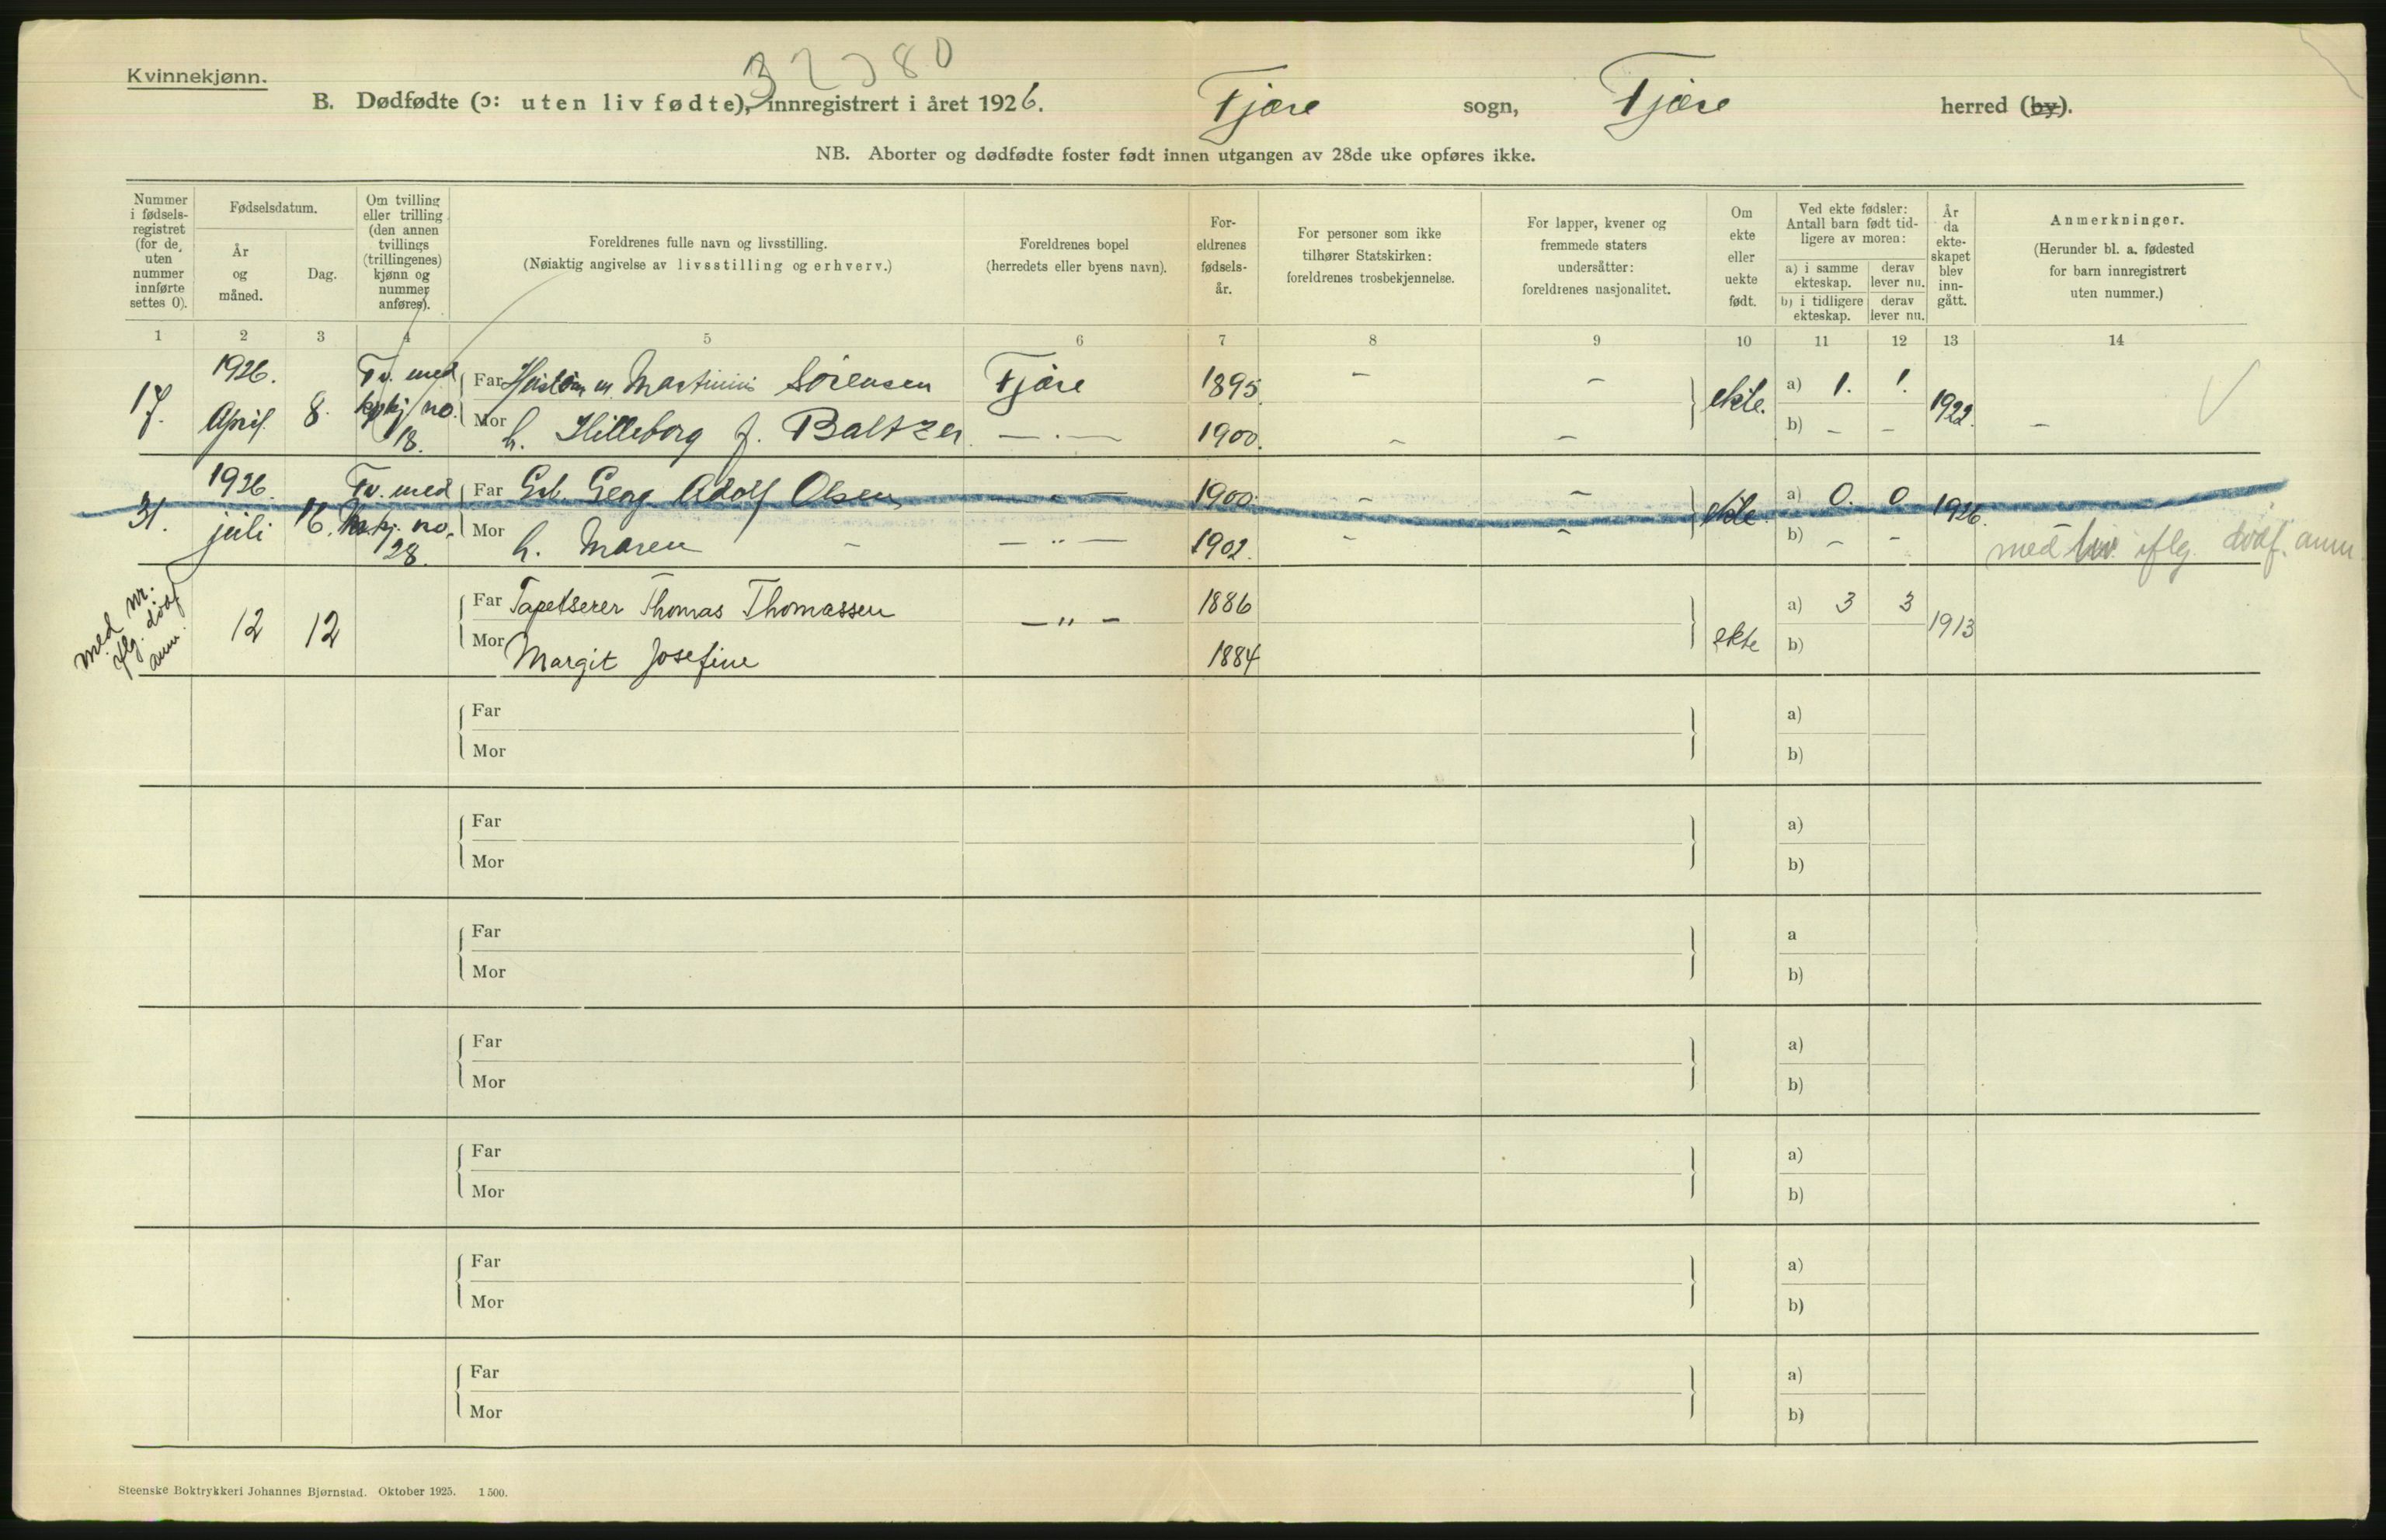 Kvinnekjønn.
B. Dødfødte (ɔ: uten liv fødte), innregistrert i året 1926. Fjære sogn, Fjære herred (by).
NB. Aborter og dødfødte foster født innen utgangen av 28de uke opføres ikke.
Nummer i fødsels-registret (for de uten nummer innførte settes 0).
Fødselsdatum.
År og måned.
Dag.
Om tvilling eller trilling (den annen tvillings (trillingenes) kjønn og nummer anføres).
Foreldrenes fulle navn og livsstilling.
(Nøiaktig angivelse av livsstilling og erhverv.)
Foreldrenes bopel
(herredets eller byens navn).
For-eldrenes fødsels-år.
For personer som ikke tilhører Statskirken: foreldrenes trosbekjennelse.
For lapper, kvener og fremmede staters undersåtter: foreldrenes nasjonalitet.
Om ekte eller uekte født.
Ved ekte fødsler: Antall barn født tid-ligere av moren:
a) i samme ekteskap. derav lever nu.
b) i tidligere ekteskap. derav lever nu.
År da ekte-skapet blev inn-gått.
Anmerkninger.
(Herunder bl. a. fødested for barn innregistrert uten nummer.)
1 2 3 4 5 6 7 8 9 10 11 12 13 14
17. 1926. April 8. Tv. med no. 18.
Far Martinius Sørensen Fjære 1895 – – ekte. a) 1. 1. 1922. –
Mor h. Hilleborg f. Baltzer — . — 1900. – – b) – –
31. 1926. juli 16. Tv. med no. 28.
Far Georg Adolf Olsen — " — 1900. – – ekte. a) 0. 0 1926.
Mor h. Maren – — " — 1902. – – b) – – med liv iflg. dødf. anm.
med nr. iflg. dødf. anm.
12 12
Far Tapetserer Thomas Thomassen — " — 1886 ekte a) 3 3 1913
Mor Margit Josefine 1884 b)
Far a)
Mor b)
Far a)
Mor b)
Far a
Mor b)
Far a)
Mor b)
Far a)
Mor b)
Far a)
Mor b)
Far a)
Mor b)
Steenske Boktrykkeri Johannes Bjørnstad. Oktober 1925. 1500.